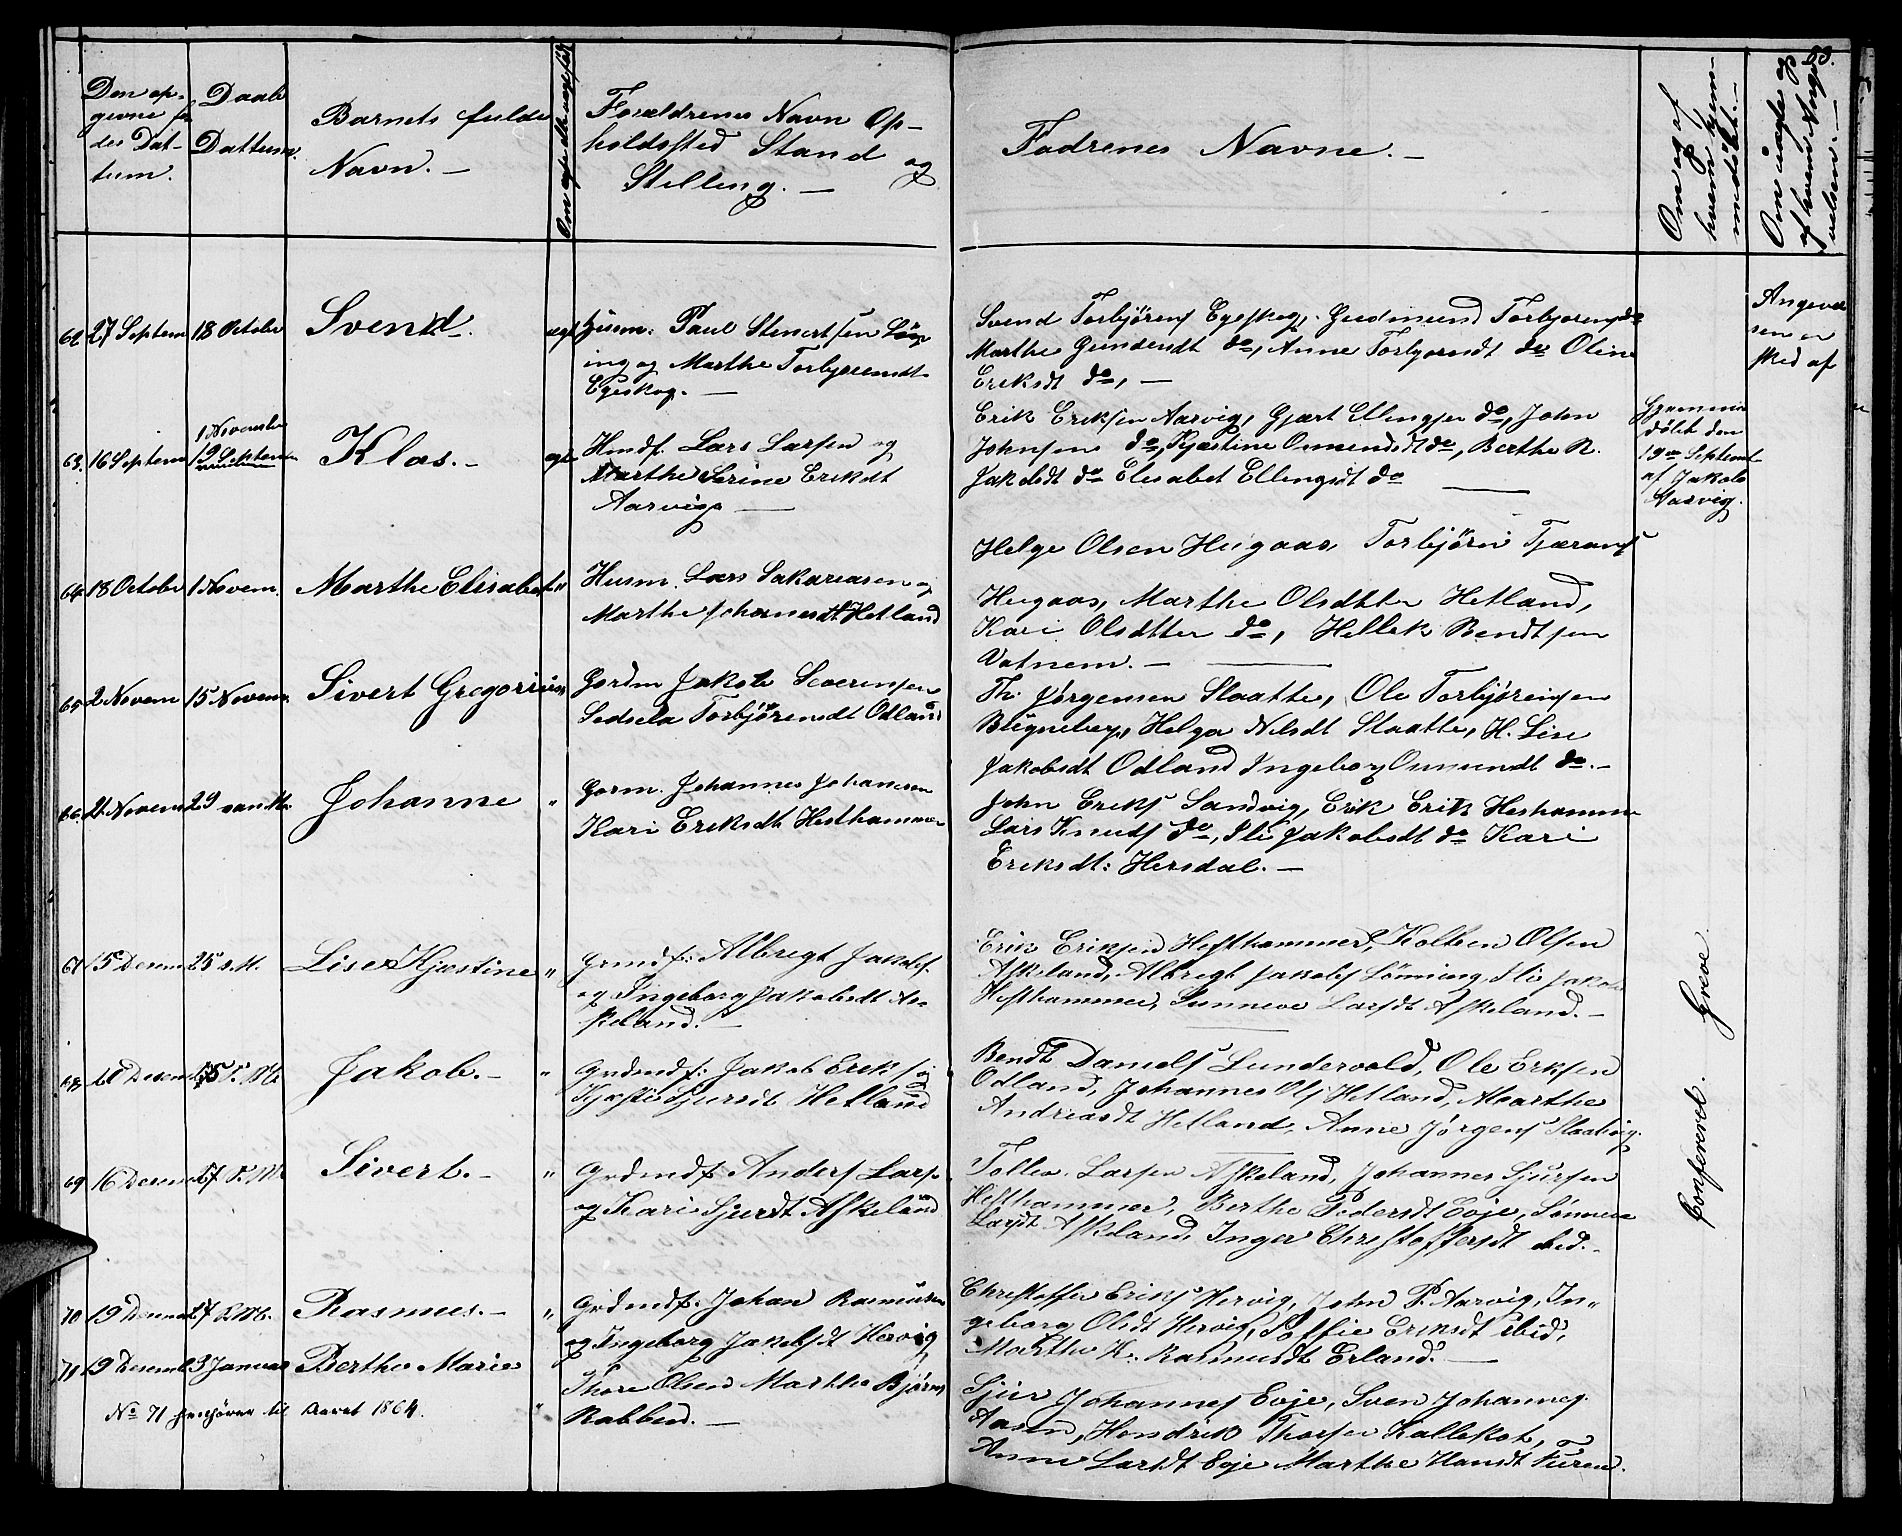 53.
Den op-
givne fø
des Dat-
tum.
Daabs
Dattum.
Barnets fulde
Navn. —
Forældrenes Navn Op-
holdssted Stand og
Stilling. —
Fadrenes Navne. —
Om og af
hvem hjem-
medøbt. —
62. 27 Septem 18 October Svend. ægt Husm: Paul Stenertsen
ing og Marthe Torbjørendt
Egeskog. —
Svend Torbjørens Egeskog, Gudmund Torbjørens do
Marthe Gundersdt do, Anne Torbjørndt do Oline
Eriksdt do, —
Angivel
sen er
sked af
63. 16 Septem 1 November
19 Septem Klas. — ægt Hmdf. Lars Larsen og
Marthe Serine Eriksdt
Aarvig —
Erik Eriksen Aarvig, Gjært Ellingsen do, John
Johnsen do, Kjæstine Osmundsdt do, Berthe R.
Jakobsdt do Elisabet Ellingsdt do —
Hjemme
døbt den
19de Septemb
af Jakob
Aarvig.
64. 18 October 1 Novem. Marthe Elisabet " Husm. Lars Sakariasen og
Marthe Johannesdt Hetland
Helge Olsen Hugaas, Torbjörn Tjærans
Hugaas, Marthe Olsdtter Hetland,
Kari Olsdtter do, Hellek Bendtsen
Vatnem. —
65. 2 Novem 15 Novem. Sivert Gregorius Gordm Jakob Severinsen
Sedsela Torbjørensdt Odland
Th. Jørgensen Slaatte, Ole Torbjørensen
Bügneberg, Helga Nilsdt Slaatte, H. Lise
Jakobsdt Odland Ingeborg Osmundt do. —
66. 21 Novem 29 Johanne " Gorm. Johannes Johanesen
Kari Eriksdt Hesthammer
John Eriks Sandvig, Erik Erik Heshammer
Lars Knuds do, Ili Jakobsdt do Kari
Eriksdt: Hersdal. —
67 15 Desem 25 s. M. Lise Kjæstine " Grmdf: Albregt Jakobs.
og Ingeborg Jakobsdt As-
keland. —
Erik Eriksen Hesthammer, Kolben Olsen
Askeland, Albregt Jakobs Lønning, Ili Jakob
Hesthammer, Sunneve Larsdt Askeland. —
68. Desem s. M. Jakob. — " Grdmdf: Jakob Eriks og
Kjæsti Sjursdt Hetland
Bendt Daniels Lundervold, Ole Eriksen
Odland, Johannes Ols Hetland, Marthe
Andreasdt Hetland, Anne Jørgens
69 16 Desem 27 s. M. Sivert. — " Grdmdf: Anders Lars.
og Kari Sjurdt Askeland
Tollev Larsen Askeland, Johannes Sjursen
Hesthammer, Berthe Pedersdt Evje, Sønneve
Larsdt Askeland, Inger Christoffersdt ibid. —
70 19 Desem 27 s. M. Rasmus. — " Grdmdf: Johan Rasmusen
og Ingeborg Jakobsdt Hervig
Christoffer Eriks Hervig, John P. Aarvig, In-
geborg Olsdt Hervig, Soffie Eriksdt ibid,
Marthe K. Rasmusdt Erland. —
71 19 Desemb 3 Januar Berthe Marie " Thore Olsen Marthe Bjørns
Rabben. —
No 71 henhører til Aaret 1864.
Sjur Johannes Evje, Sven Johannes.
Aasen, Hendrik Thorsen Kallekot,
Anne Larsdt Evje Marthe Hansdt Furen.
Confereret. Greve.